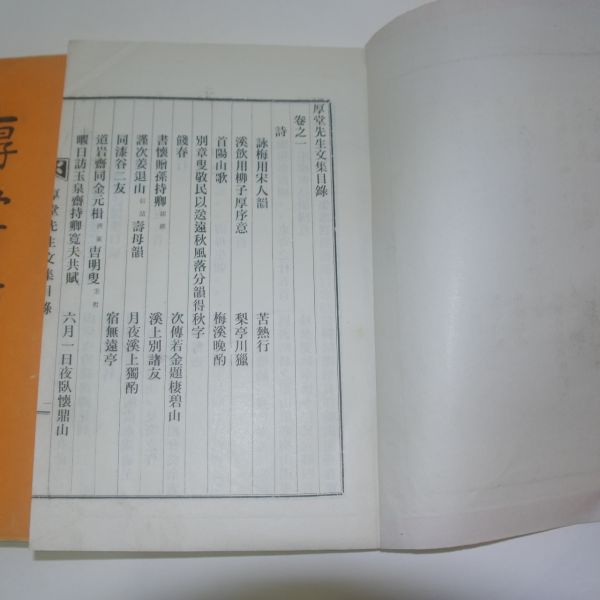 厚堂先生文集目錄
卷之一
詩
詠梅用宋人韻 苦熱行
溪飲用柳子厚序意 梨亭川獵
首陽山歌 梅溪晩酌
別章叟敬民以送遠秋風落分韻得秋字
餞春 次傳若金題棲碧山
書懷贈孫持卿 溪上別諸友
謹次姜退山 壽母韻 月夜溪上獨酌
同漆谷二友 宿無遠亭
道岩齋同金元楫 吉明叟
曬日訪玉泉齋持卿寬夫共賦 六月一日夜臥懷鼎山
厚堂先生文集目錄 一
厚堂